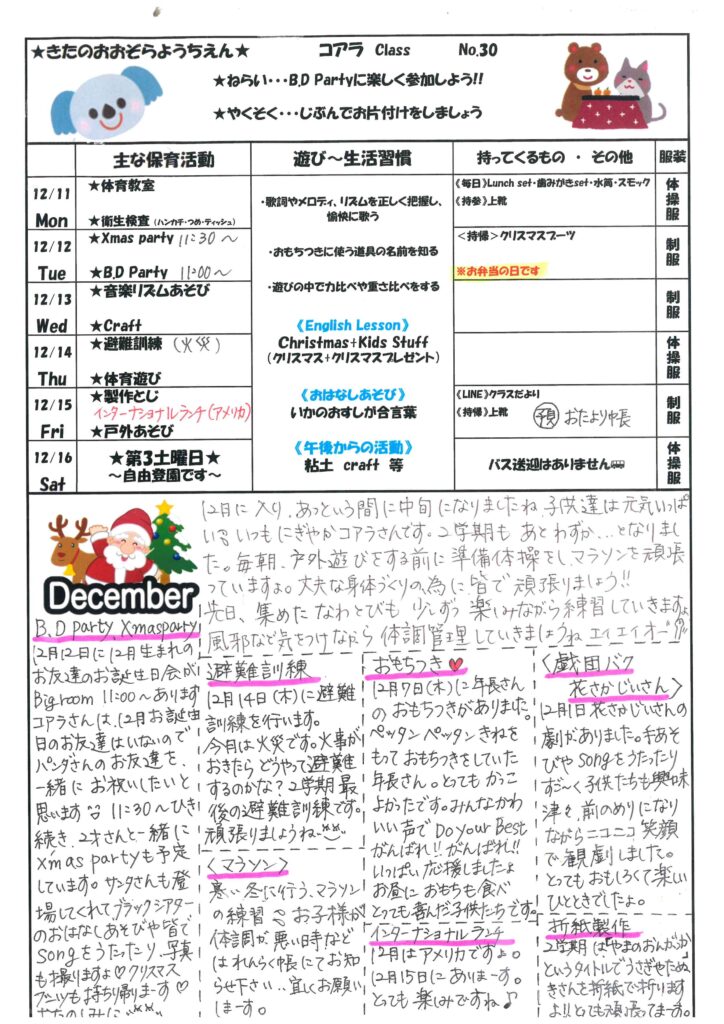 ★きたのおおぞらようちえん★ コアラ Class No.30
★ねらい・・・B,D Partyに楽しく参加しよう!!
★やくそく・・・じぶんでお片付けをしましょう
主な保育活動 遊び～生活習慣 持ってくるもの ・ その他 服装
12/11 Mon
★体育教室
★衛生検査 (ハンカチ・つめ・ティッシュ)
・歌詞やメロディ、リズムを正しく把握し、
愉快に歌う
《毎日》Lunch set・歯みがきset・水筒・スモック
《持参》上靴
体操服
12/12 Tue
★Xmas party 11:30～
★B,D Party 11:00～
・おもちつきに使う道具の名前を知る
＜持帰＞クリスマスブーツ
※お弁当の日です
制服
12/13 Wed
★音楽リズムあそび
★Craft
・遊びの中で力比べや重さ比べをする
《English Lesson》
制服
12/14 Thu
★避難訓練 (火災)
★体育遊び
Christmas+Kids Stuff
(クリスマス+クリスマスプレゼント)
体操服
12/15 Fri
★製作とじ
インターナショナルランチ(アメリカ)
★戸外あそび
《おはなしあそび》
いかのおすしが合言葉
《LINE》クラスだより
《持帰》上靴 予 おたより帳
制服
12/16 Sat
★第3土曜日★
～自由登園です～
《午後からの活動》
粘土 craft 等
バス送迎はありません
体操服
December
12月に入り、あっという間に中旬になりましたね、子供達は元気いっぱ
い いつもにぎやかコアラさんです。2学期も あとわずか…となりまし
た。毎朝、戸外遊びをする前に準備体操をし、マラソンを頑張
っていますよ。丈夫な身体づくりの為に皆で頑張りましょう!!
先日、集めた なわとびも 少しずつ 楽しみながら練習していきますよ
風邪など気をつけながら 体調管理していきましょうね エイエイオー!!
B,D party, Xmasparty
12月12日に12月生まれの
お友達のお誕生日会が
Bigroom 11:00～あります
コアラさんは、12月お誕生
日のお友達はいないので
パンダさんのお友達を、
一緒に お祝いしたいと
思います 11:30～ひき
続き、2才さんと一緒に
X'mas partyも予定
しています。サンタさんも登
場してくれてブラックシアター
のおはなしあそびや皆で
Songをうたったり、写真
も撮りますよ♡クリスマス
ブーツも持ち帰ります♡
避難訓練
12月14日(木)に避難
訓練を行います。
今月は火災です。火事が
おきたら どうやって避難
するのかな？2学期最
後の避難訓練です。
頑張りましょうね
〈マラソン〉
寒い冬に行う、マラソン
の練習～お子様が
体調が悪い時など
はれんらく帳にてお知
らせ下さい‥宜しくお願い
しまーす。
おもちつき♥
12月7日(木)に年長さん
の おもちつきがありました。
ペッタン ペッタン きねを
もって おもちつきをしていた
年長さん。とても かっこ
よかったです。みんなかわ
いい声で Do Your Best
がんばれ!! がんばれ!!
いっぱい応援しましたよ
お昼に おもちも食べ
とっても喜んだ子供たちです。
インターナショナルランチ
12月はアメリカですよ。
12月15日にありまーす。
とっても楽しみですね♪
〈戯団バク
花さかじいさん〉
12月1日花さかじいさんの
劇がありました。手あそ
びやSongをうたったり
ず～く子供たちも興味
津々、前のめりになり
ながらニコニコ笑顔
で観劇しました。
とってもおもしろくて楽しい
ひとときでしたよ。
折紙製作
2学期は「やまのおんがっか」
というタイトルでうさぎやたぬ
きさんを折紙で折ります
よ!! とっても頑張ってまーす。